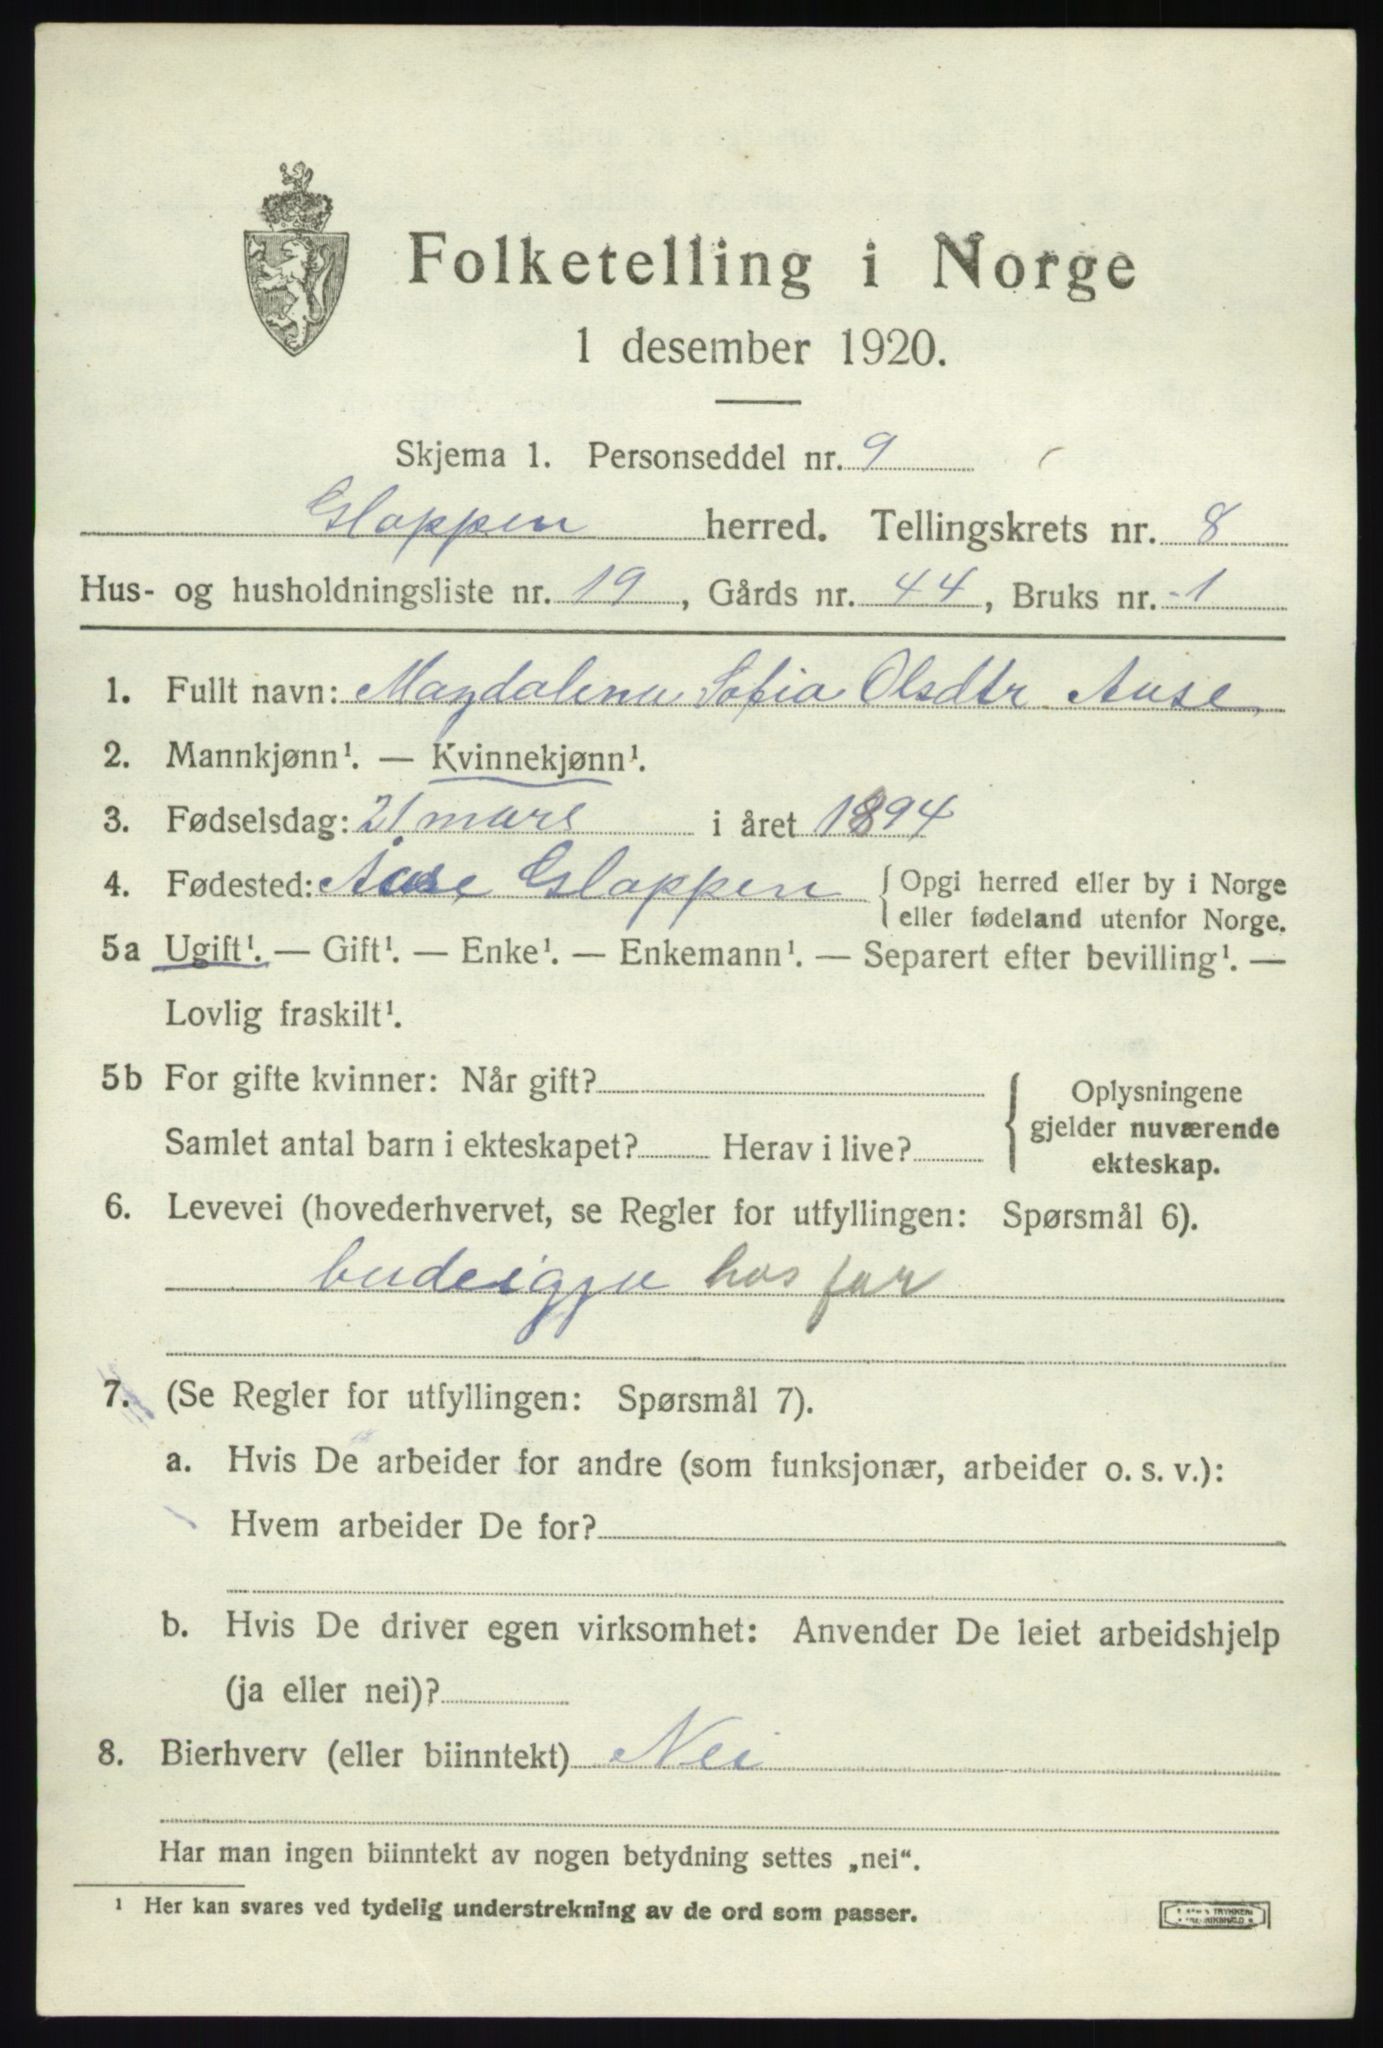 Folketelling i Norge
1 desember 1920.
Skjema 1. Personseddel nr. 9
Gloppen herred. Tellingskrets nr. 8
Hus- og husholdningsliste nr. 19, Gårds nr. 44, Bruks nr. 1
1. Fullt navn: Magdalena Sofia Olsdtr Aase
2. Mannkjønn¹. — Kvinnekjønn¹.
3. Fødselsdag: 21 mars i året 1894
4. Fødested: Aase Gloppen { Opgi herred eller by i Norge
eller fødeland utenfor Norge.
5a Ugift¹. — Gift¹. — Enke¹. — Enkemann¹. — Separert efter bevilling¹. —
Lovlig fraskilt¹.
5b For gifte kvinner: Når gift?
Samlet antal barn i ekteskapet? Herav i live?
Oplysningene
gjelder nuværende
ekteskap.
6. Levevei (hovederhvervet, se Regler for utfyllingen: Spørsmål 6).
budeigja hos far
7. (Se Regler for utfyllingen: Spørsmål 7).
a. Hvis De arbeider for andre (som funksjonær, arbeider o. s. v.):
Hvem arbeider De for?
b. Hvis De driver egen virksomhet: Anvender De leiet arbeidshjelp
(ja eller nei)?
8. Bierhverv (eller biinntekt) Nei
Har man ingen biinntekt av nogen betydning settes „nei“.
¹ Her kan svares ved tydelig understrekning av de ord som passer.